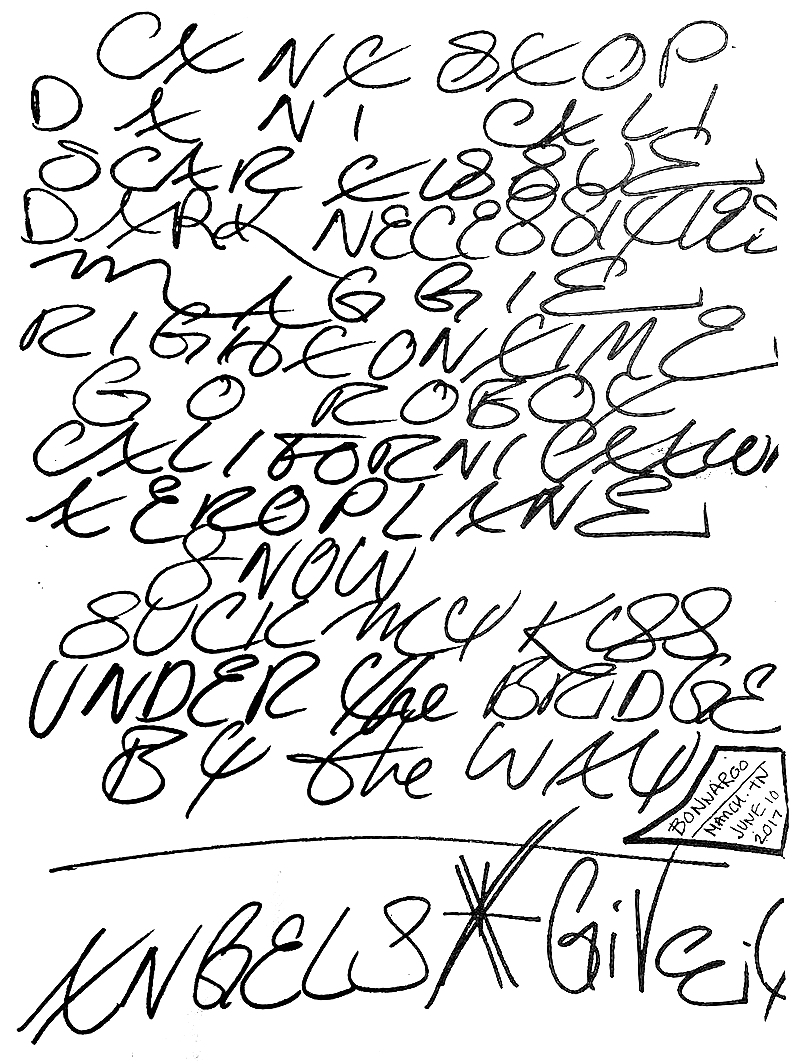 CAN'T STOP
DANI CALI
SCAR TISSUE
DARK NECESSITIES
MAGGIE
RIGHT ON TIME
GO ROBOT
CALIFORNICATION
AEROPLANE
SNOW
SUCK MY KISS
UNDER the BRIDGE
BY the WAY
BONNAROO
MANCH. TN
JUNE 10
2017
ANGELS * GIVE IT